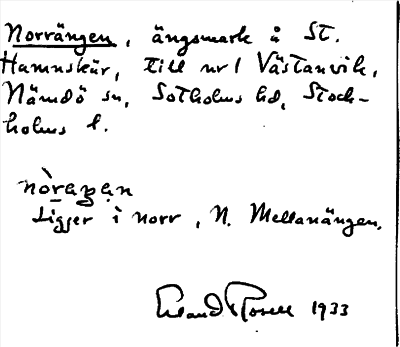 Norrängen, ängsmark å St.
Hamnskär, till nr 1 Västanvik,
Nämdö sn, Sotholms hd, Stock-
holms l.
Ligger i norr, N. Mellanängen.
Erland Rosell 1933